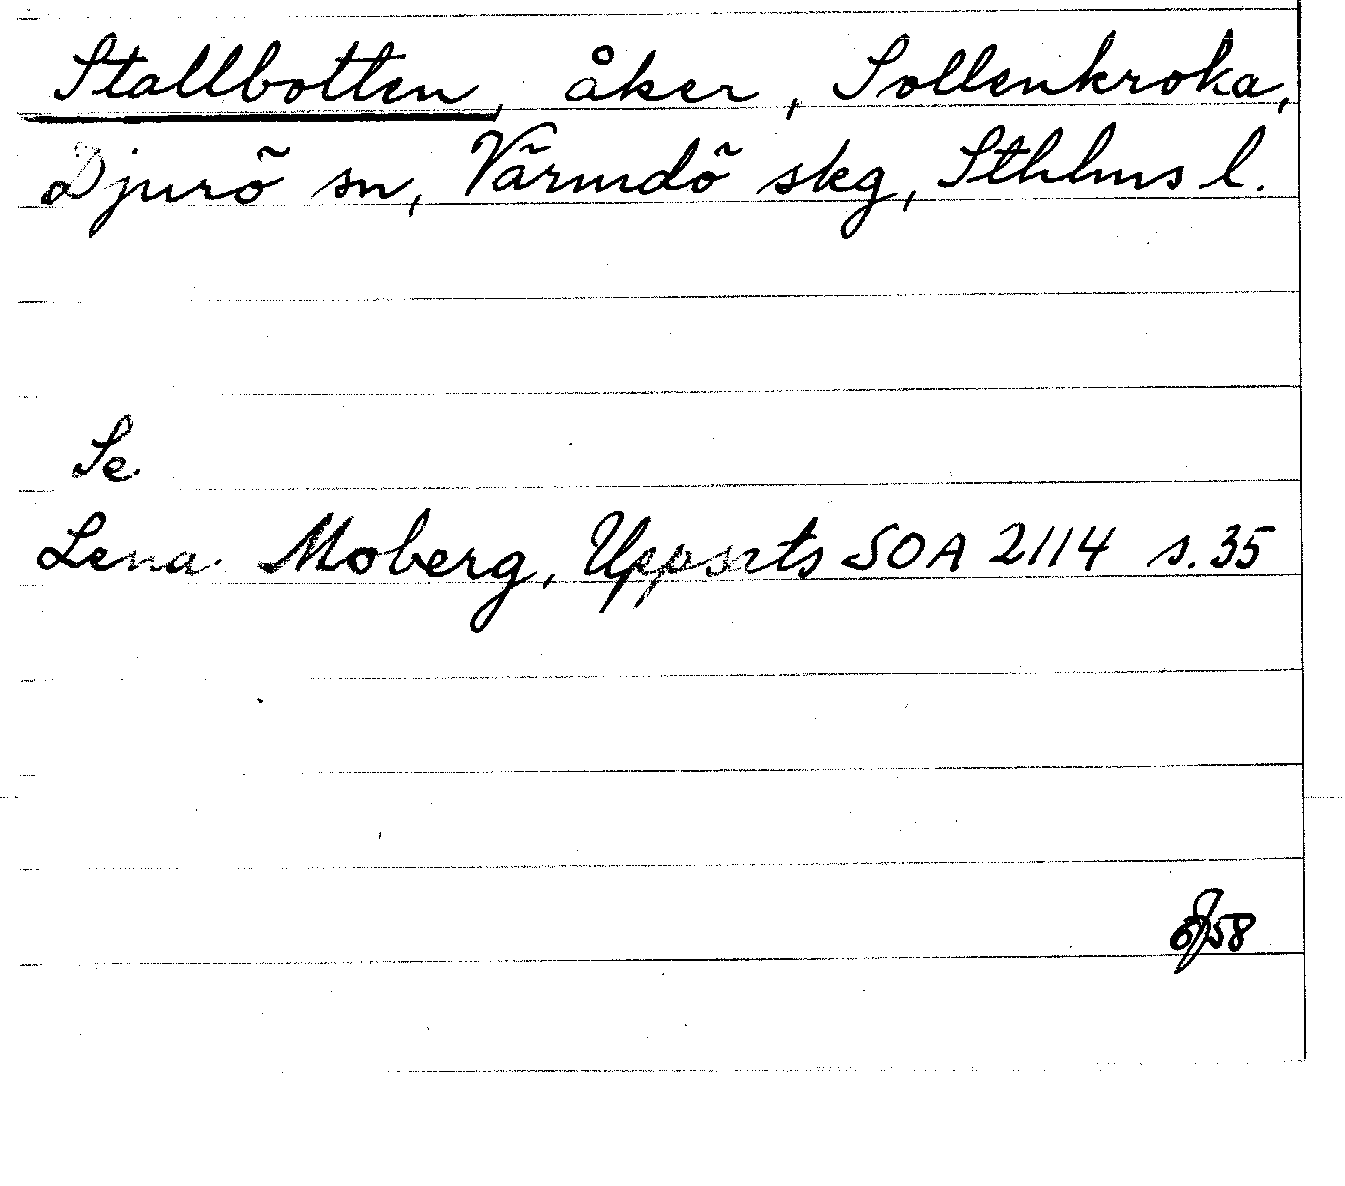 Stallbotten, åker, Sollenkroka,
Djurö sn, Värmdö skg, Sthlms l.
Se
Lena Moberg, Uppsats SOA 2114 s. 35